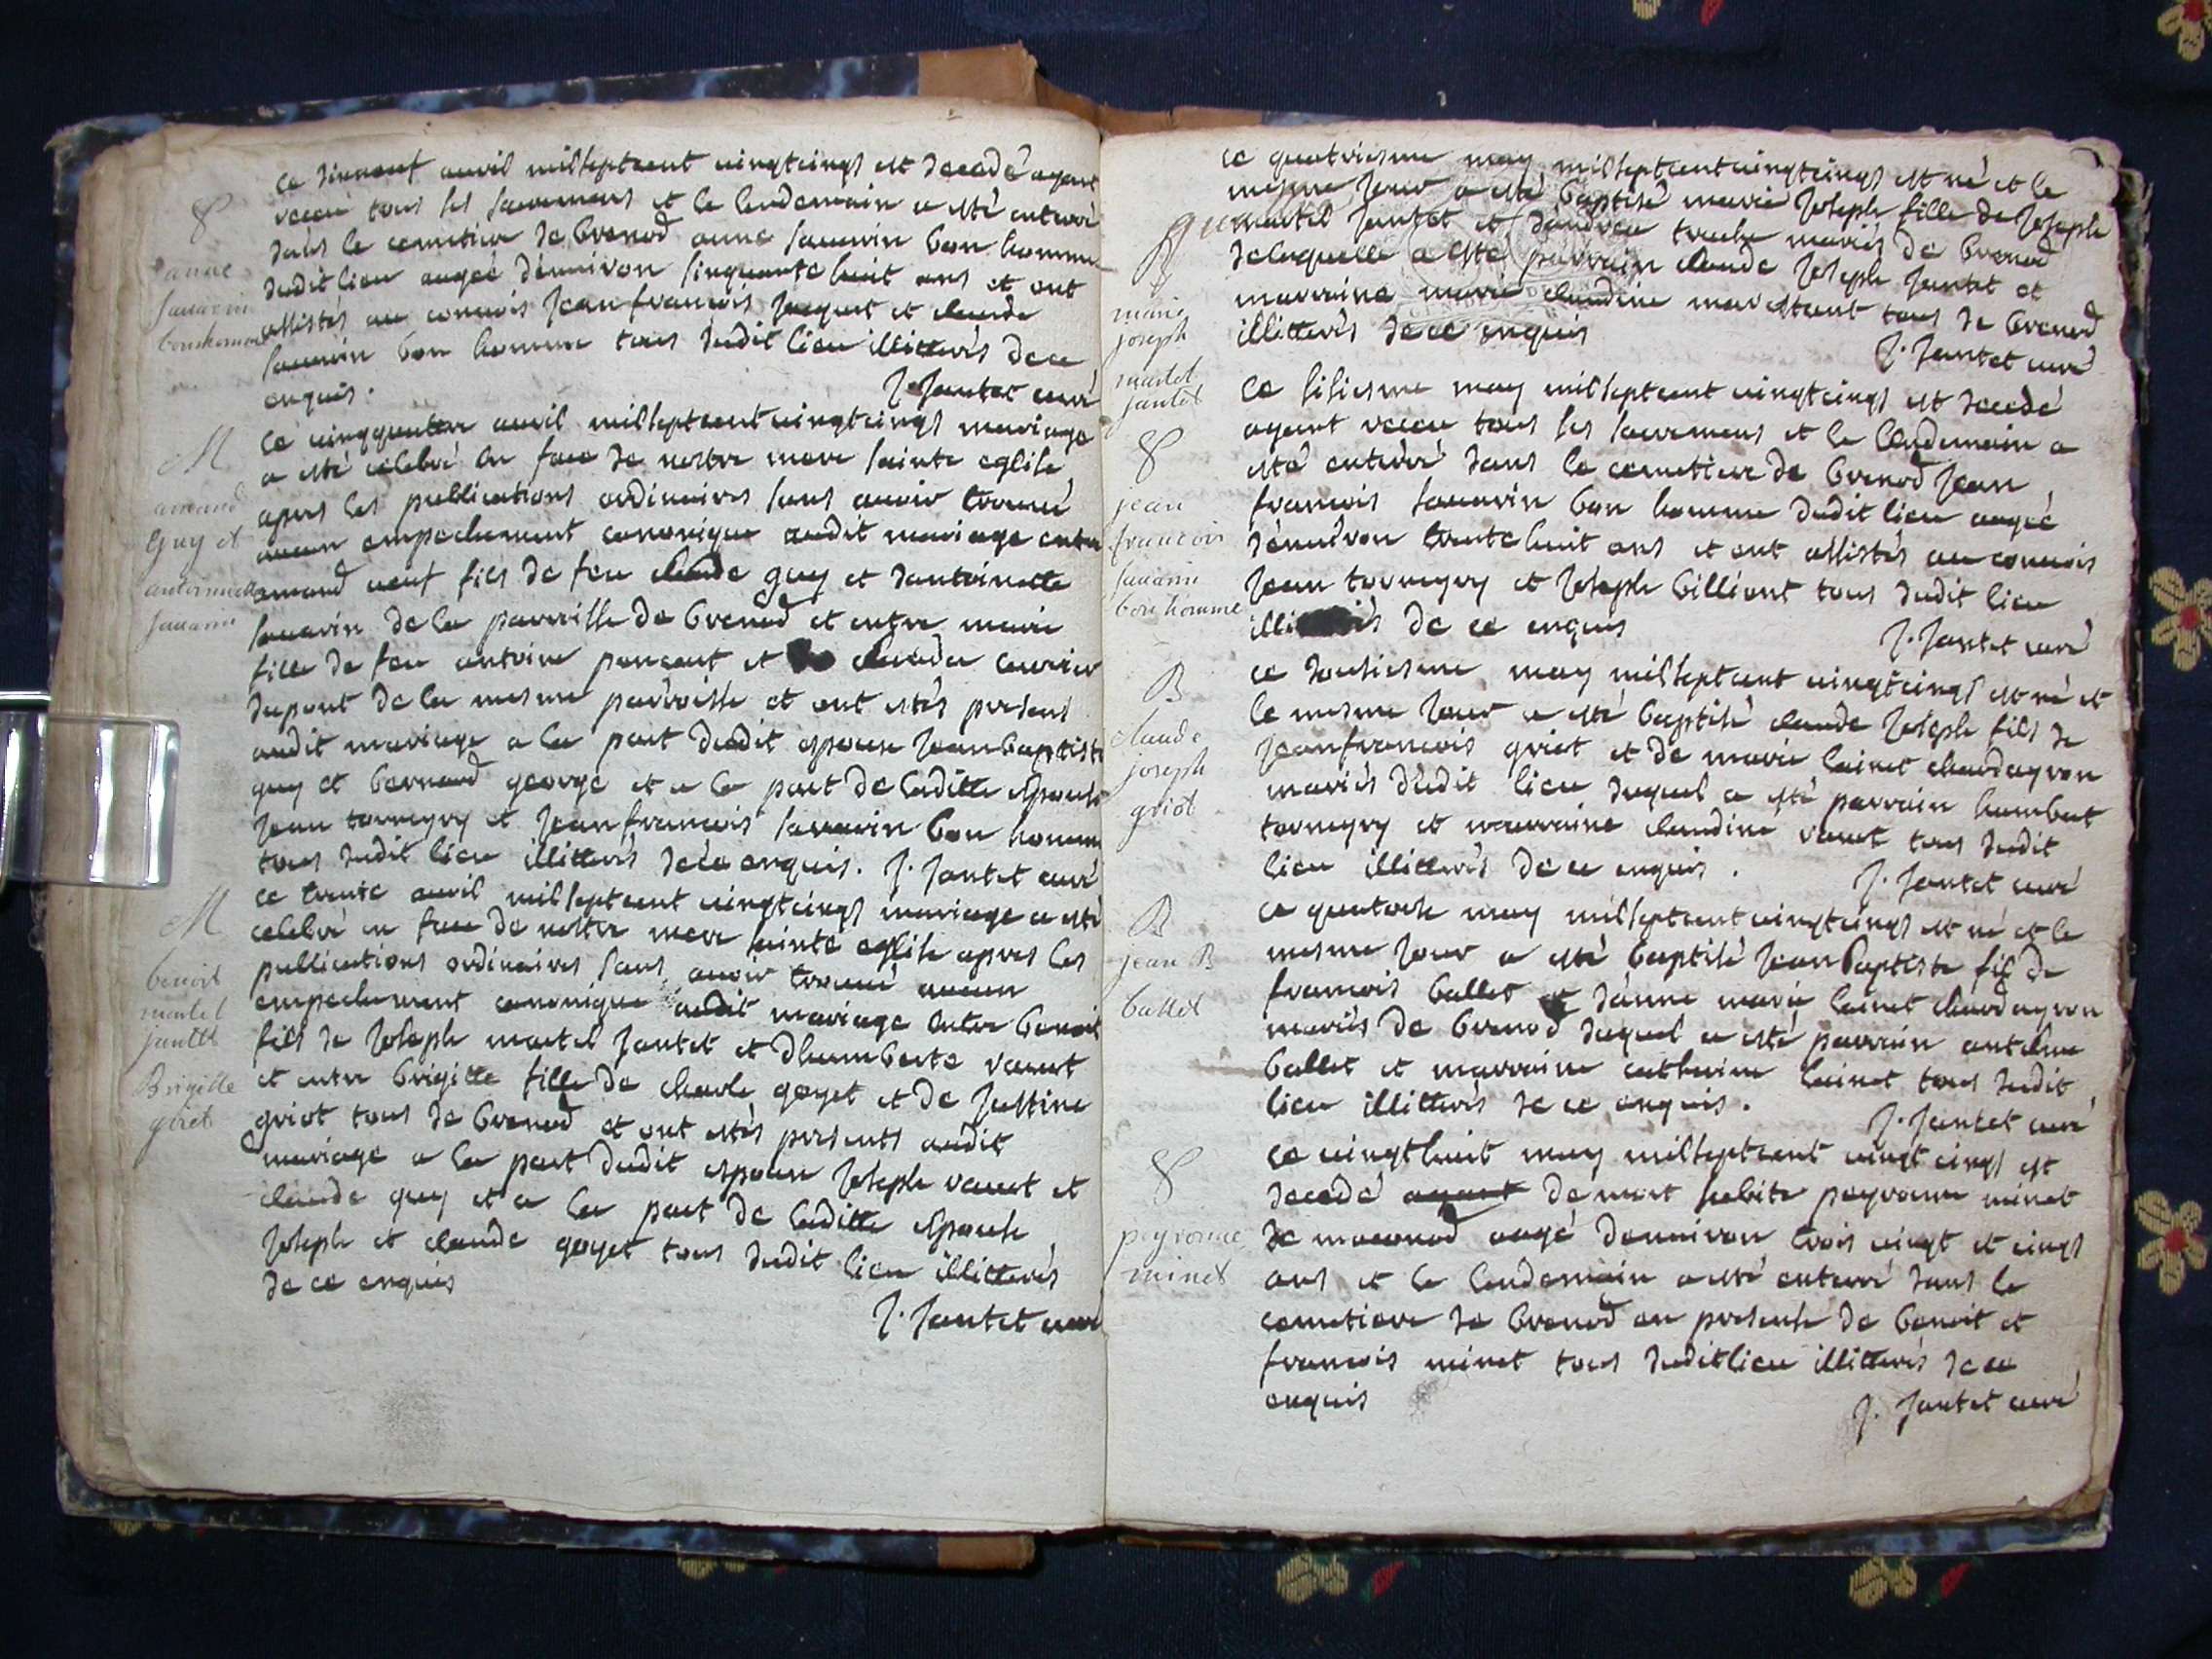 ce dixneuf avril milseptcent vingtcinqs est decedé ayant
receu tous les sacremens et le lendemain a esté enterré
dans le cemetiere de brenod anne savarin bon homme
dudit lieu aagée denuiron sinquante huit ans et ont
assistés au conuois jean francois et claude
savarin bon homme tous dudit lieu illitterés de ce
enquis.
J. Jantet curé
anne
savarin
bonhomme
ce vingquatre avril milseptcent vingtcinqs mariage
a esté celebré en face de nostre mere sainte eglise
apres les publications ordinaires sans avoir trouué
aucun empechement canonique audit mariage entre
amand veuf fils de feu claude guy et dantoinette
savarin de la parroisse de brenod et entre marie
fille de feu antoine poncent et clauda
dupont de la mesme parroisse et ont estés presens
audit mariage a la part dudit espoux jean baptiste
guy et bernard george et a la part de laditte espouse
jean tornyery et jean francois savarin bon homme
tous dudit lieu illitterés de ce enquis. J. Jantet curé
M
amand
Guy et
antoinette
savarin
ce trente avril milseptcent vingtcinqs mariage a esté
celebré en face de nostre mere sainte eglise apres les
publications ordinaires sans avoir trouué aucun
empechement canonique audit mariage entre benoit
fils de joseph martel jantet et dhumberte
et entre brigitte fille de charle goyet et de justine
griot tous de brenod et ont estés presents audit
mariage a la part dudit espoux joseph et
claude guy et a la part de laditte espouse
joseph et claude goyet tous dudit lieu illitterés
de ce enquis
J. Jantet curé
M
benoit
martel
jantet
Brigitte
ce quatriesme may milseptcent vingtcinqs est né et le
mesme jour a esté baptisé marie joseph fille de joseph
martel jantet et mariés de brenod
de laquelle a esté parrain claude joseph jantet et
marraine marie claudine tous de brenod
illitterés de ce enquis
J. Jantet curé
B
marie
joseph
martel
jantet
ce sisiesme may milseptcent vingtcinqs est decedé
ayant receu tous les sacremens et le lendemain a
esté enterré dans le cemetiere de brenod jean
francois savarin bon homme dudit lieu aagé
denuiron trente huit ans et ont assistés au conuois
jean tornyery et joseph billiont tous dudit lieu
de ce enquis
J. Jantet curé
jean
francois
savarin
bon homme
ce dousiesme may milseptcent vingtcinqs est né et
le mesme jour a esté baptisé claude joseph fils de
jean francois griot et de marie lainet chardeyron
mariés dudit lieu duquel a esté parrain humbert
tornyery et marraine claudine tous dudit
lieu illitterés de ce enquis.
J. Jantet curé
B
claude
joseph
griot
ce quatorse may milseptcent vingtcinqs est né et le
mesme jour a esté baptisé jean baptiste fils de
francois ballet et danne marie lainet chardeyron
mariés de brenod duquel a esté parrain antelme
ballet et marraine catherine lainet tous dudit
lieu illitterés de ce enquis.
J. Jantet curé
B
jean B
ballet
ce vingthuit may milseptcent vingt cinqs est
decedé ayant de mort subite peyronne minet
de maconod aagé denuiron trois vingt et cinqs
ans et le lendemain a esté enterré dans le
cemetiere de brenod en presense de benoit et
francois minet tous dudit lieu illitterés de ce
enquis
J. Jantet curé
peyronne
minet